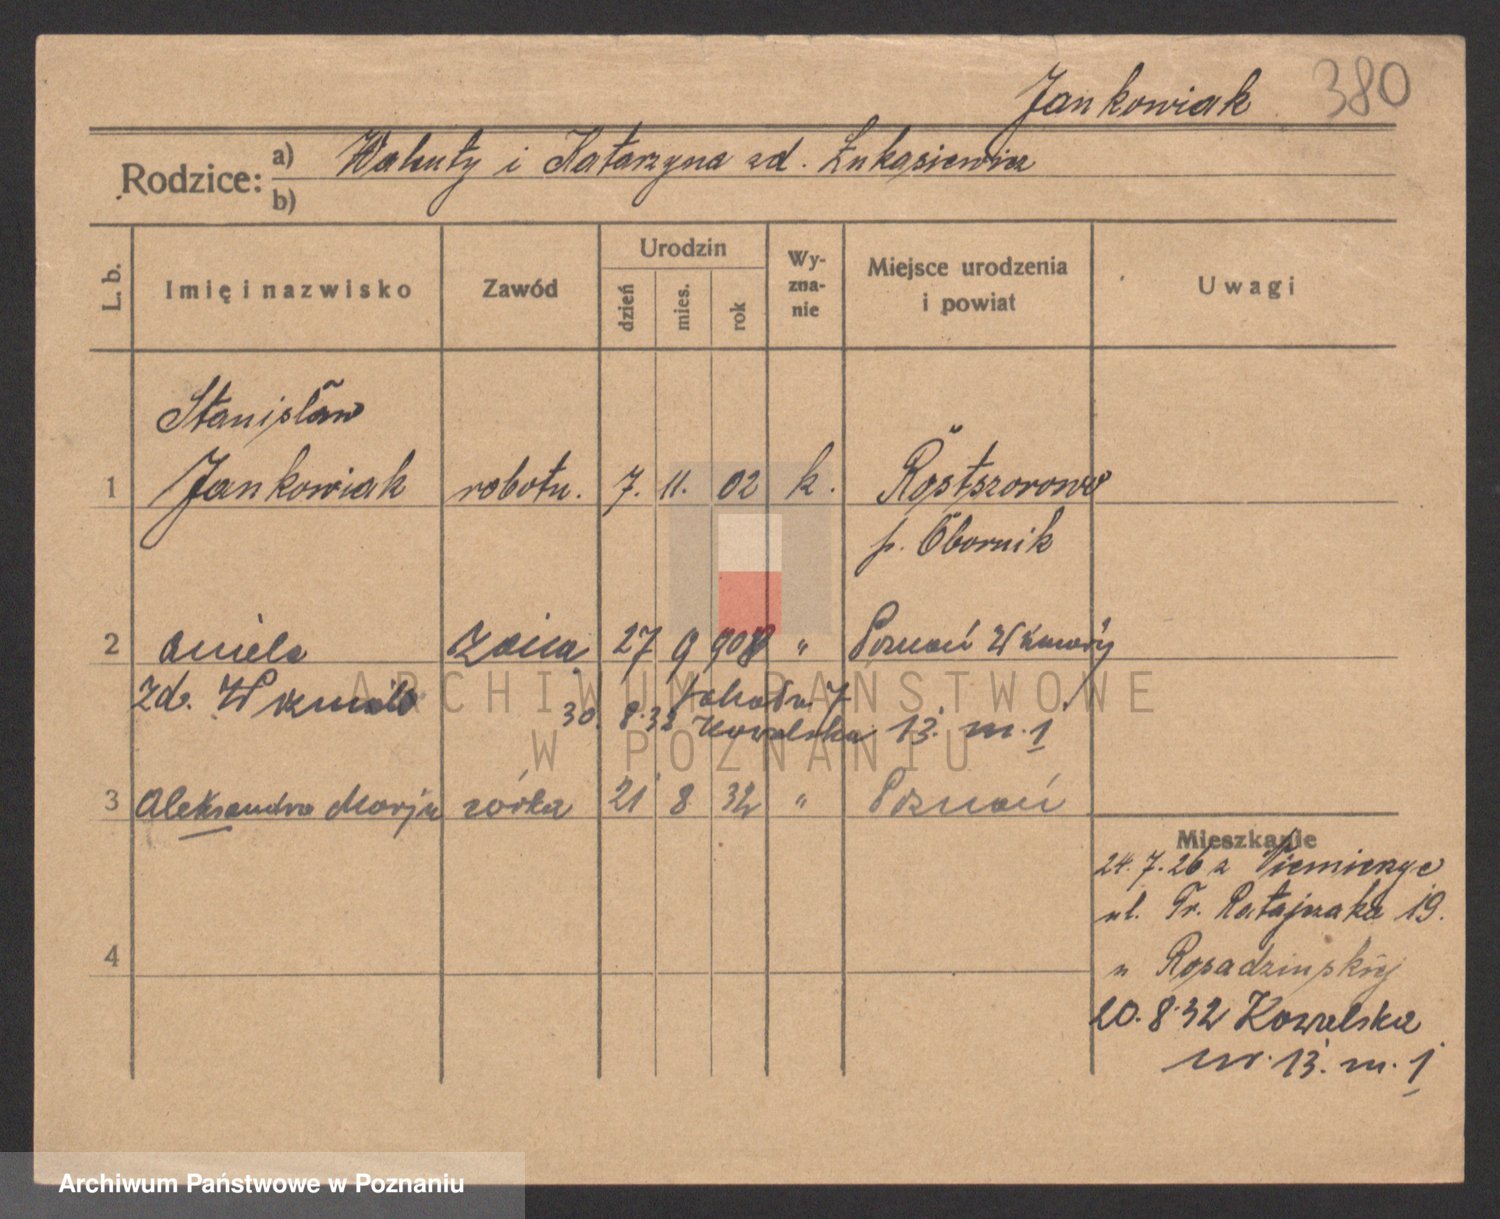 Jankowiak 380
Rodzice: a) Walenty i Katarzyna zd. Łukasiewicz
b)
L. b. Imię i nazwisko Zawód Urodzin dzień mies. rok Wyznanie Miejsce urodzenia i powiat Uwagi
Stanisław
1 Jankowiak robotn. 7. 11. 02 k. Rostszorowo
p. Obornik
2 Aniela żona 27 9 908 " Poznań
zd.
30. 8.32 Kowalska 13. m. 1
3 Aleksandra Marja córka 21 8 32 " Poznań
Mieszkanie
24. 7. 26 z
ul. Fr. Ratajczaka 19.
u Rosadzinskiej
4
20. 8 32 Kowalska
nr. 13. m. 1
ARCHIWUM PAŃSTWOWE
W POZNANIU
Archiwum Państwowe w Poznaniu